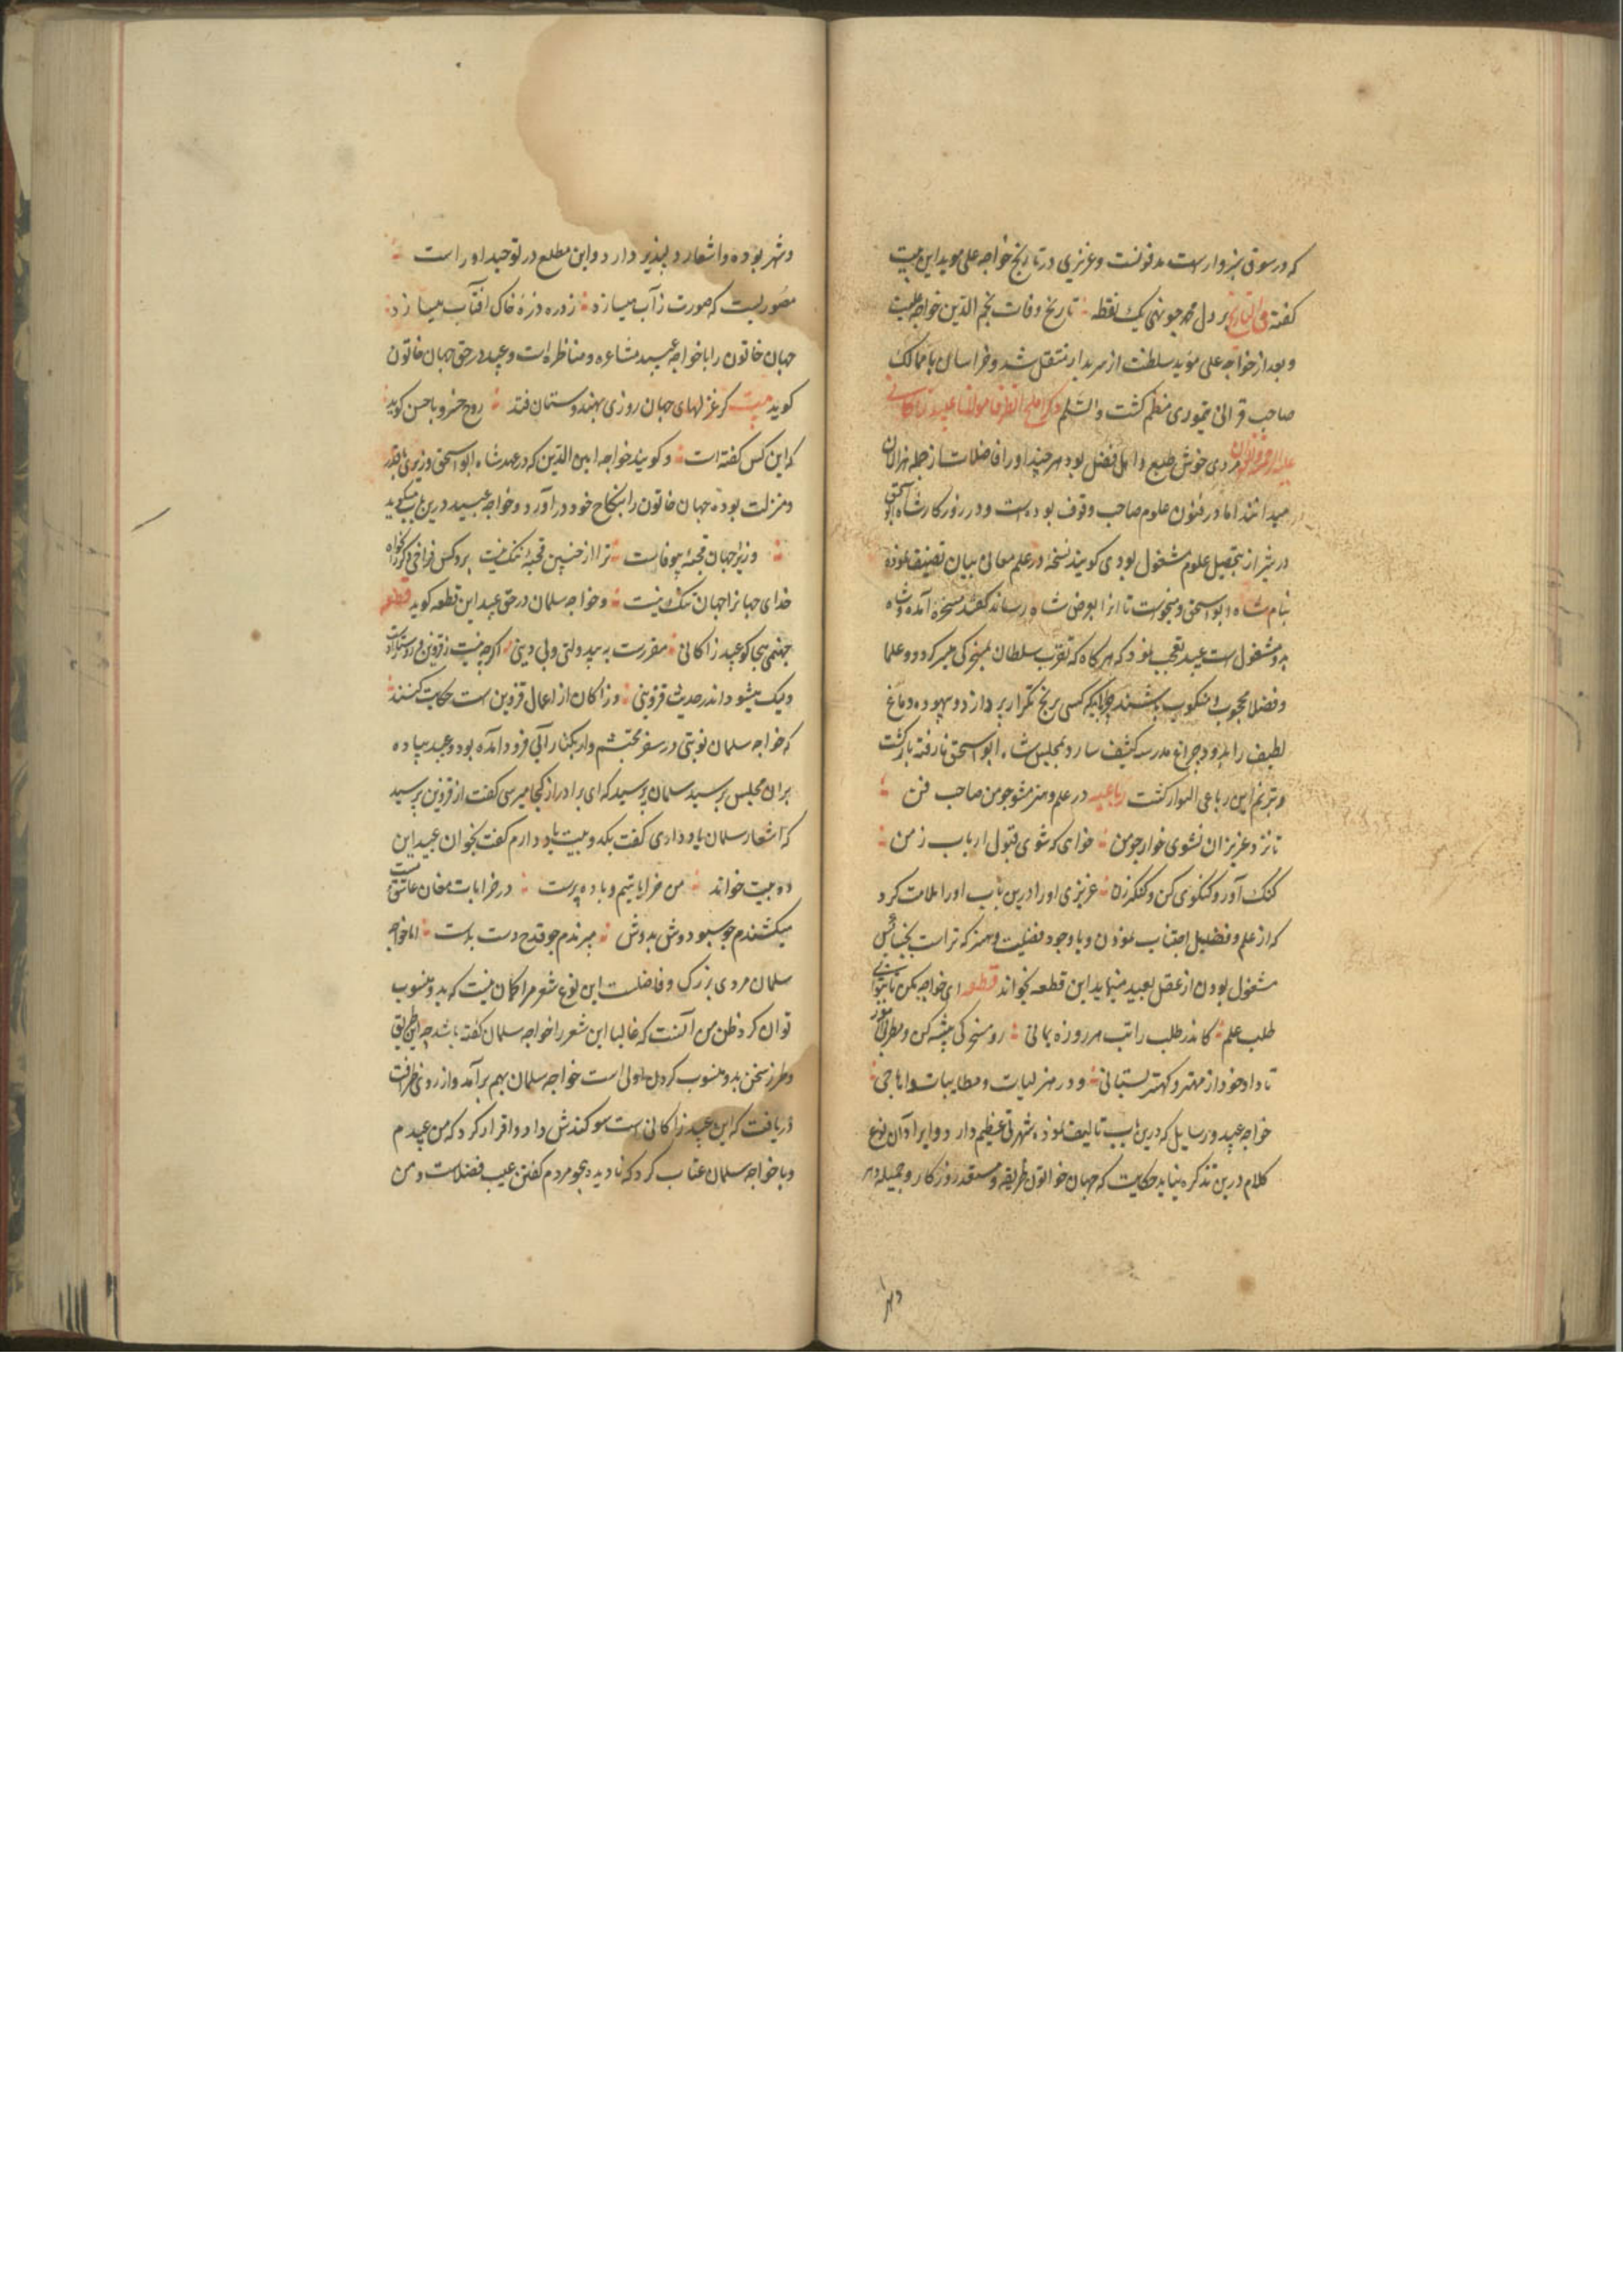 که در سوق سبزوار است مدفونست و عزیزی در تاریخ خواجه علی موید این بیت
کفته فی التاریخ بر دل محمد چو نهی یک نقطه تاریخ وفات نجم الدین خواجه علیست
و بعد از خواجه علی موید سلطنت از سربدار منتقل شد و خراسان با ممالک
صاحب قرانی تیموری منظم کشت والسلم ذکر املح الظرفا مولانا عبید زاکانی
علیه الرحمه مردی خوش طبع و اهل فضل بود هر چند او را فاضلات از جمله هزالان
میدانند اما در فنون علوم صاحب وقوف بوده است و در روزکار شاه ابو اسحق
در شیراز بتحصیل علوم مشغول بودی کویند نسخه در علم معانی بیان تصنیف نموده
بنام شاه ابو اسحق و میخوست تا انرا بعرض شاه رساند کفتند مسخره آمده و شاه
بدو مشغول است عبید تعجب نمود که هر کاه که تقرب سلطان بمسخرکی میسر کردد و علما
و فضلا محجوب و منکوب باشند چرا باید که کسی برنج تکرار پردازد و بیهوده دماغ
لطیف را بدود چراغ مدرسه کثیف سازد بمجلس شاه ابو اسحق نارفته بازکشت
و بترنم این رباعی النواز کشت رباعیه در علم و هنر مشو چو من صاحب فن
تا نزد عزیزان نشوی خوار چو من خواهی که شوی قبول ارباب زمن
کنک آور و کنکری کن و کنکر زن عزیزی او را درین باب اورا ملامت کرد
که از علم و فضایل اجتناب نمودن و با وجود فضیلت و هنر که تراست بخسایس
مشغول بودن از عقل بعید مینماید این قطعه بخواند قطعه ای خواجه مکن تا بتوانی
طلب علم کاندر طلب راتب هر روزه بمانی رو مسخرکی پیشه کن و مطربی آموز
تا داد خود از مهتر و کهتر بستانی و در هزلیات و مطایبات و اهاجی
خواجه عبید و رسایل که درین باب تالیف نموده شهرتی عظیم دارد و ایراد آن نوع
کلام درین تذکره نیاید حکایت که جهان خواتون ظریفه و مستعد روزکار و جمیله دهر
و شهر بوده و اشعار دلپذیر دارد و این مطلع در توحید اور است
مصوریست که صورت زآب میسازد ز ذره ذره خاک افتاب میسازد
جهان خاتون را با خواجه عبید مشاعره و مناظره است و عبید در حق جهان خاتون
کوید بیت کر غزلهای جهان روزی بهندوستان فتد روح خسرو با حسن کوید
که این کس کفته است و کویند خواجه امین الدین که در عهد شاه ابو اسحق وزیری با قدر
و منزلت بوده جهان خاتون را بنکاح خود در آورد و خواجه عبید درین باب میکوید
وزیرا جهان قحبه بیوفاست ترا از چنین قحبه ننک نیست برو کس فراخی دکر را بخواه
خدای جهانرا جهان تنک نیست و خواجه سلمان در حق عبید این قطعه کوید قطعه
جهنمی هجا کو عبید زاکانی مقررست به بیدولتی و بی دینی اکرچه نیست ز قزوین و روستازاد است
ولیک میشود اندر حدیث قزوینی و زاکان از اعمال قزوین است حکایت کنند
که خواجه سلمان نوبتی در سفر محتشم وار بکنار آبی فرود آمده بود و عبید پیاده
بران مجلس برسید سلمان پرسید که ای برادر از کجا میرسی کفت از قزوین پرسید
که اشعار سلمان یاد داری کفت یکدو بیت یاد دارم کفت بخوان عبید این
دو بیت خواند من خراباتیم و باده پرست در خرابات مغان عاشق و مست
میکشندم چو سبو دوش بدوش میبرندم چو قدح دست بدست اما خواجه
سلمان مردی بزرک و فاضلست این نوع شعر مرا کمان نیست که بدو منسوب
توان کرد ظن من آنست که غالبا این شعر را خواجه سلمان کفته باشد چه این طریق
و طرز سخن بدو منسوب کردن اولی است خواجه سلمان بهم برآمد و از روی ظرافت
دریافت که این عبید زاکانی است سوکندش داد و اقرار کرد که من عبیدم
و با خواجه سلمان عتاب کرد که نادیده هجو مردم کفتن عیب فضلاست و من